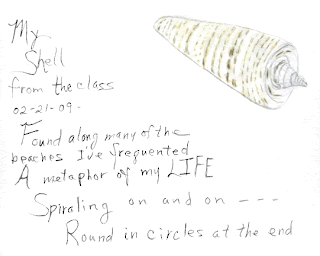 My
Shell
from the class
02-21-09.
Found along many of the
beaches I've frequented
A metaphor of my LIFE
Spiraling on and on ---
Round in circles at the end